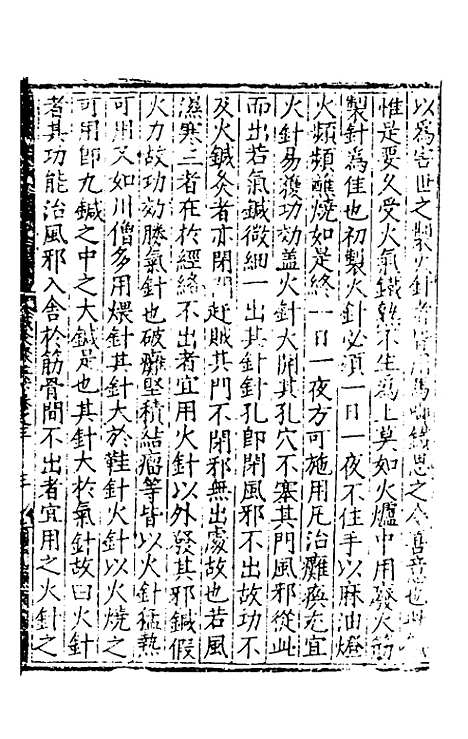 以爲告世之製火針者皆用馬啣鐵思之
惟是要久受火氣鐵熟不生爲上莫如火爐中用廢火筯
製針爲佳也初製火針必須一日一夜不住手以麻油燈
火頻頻蘸燒如是終一日一夜方可施用凡治癱瘓宜
火針易獲功効盖火針大開其孔穴不塞其門風邪從此
而出若氣鍼微細一出其針針孔即閉風邪不出故功不
及火鍼灸者亦閉門赶賊其門不閉邪無出處故也若風
濕寒三者在於經絡不出者宜用火針以外發其邪鍼假
火力故功効勝氣針也破癰堅積結瘤等皆以火針猛熱
可用又如川僧多用煨針其針大於鞋針火針以火燒之
可用即九鍼之中之大鍼是也其針大於氣針故曰火針
者其功能治風邪入舍於筋骨間不出者宜用之火針之